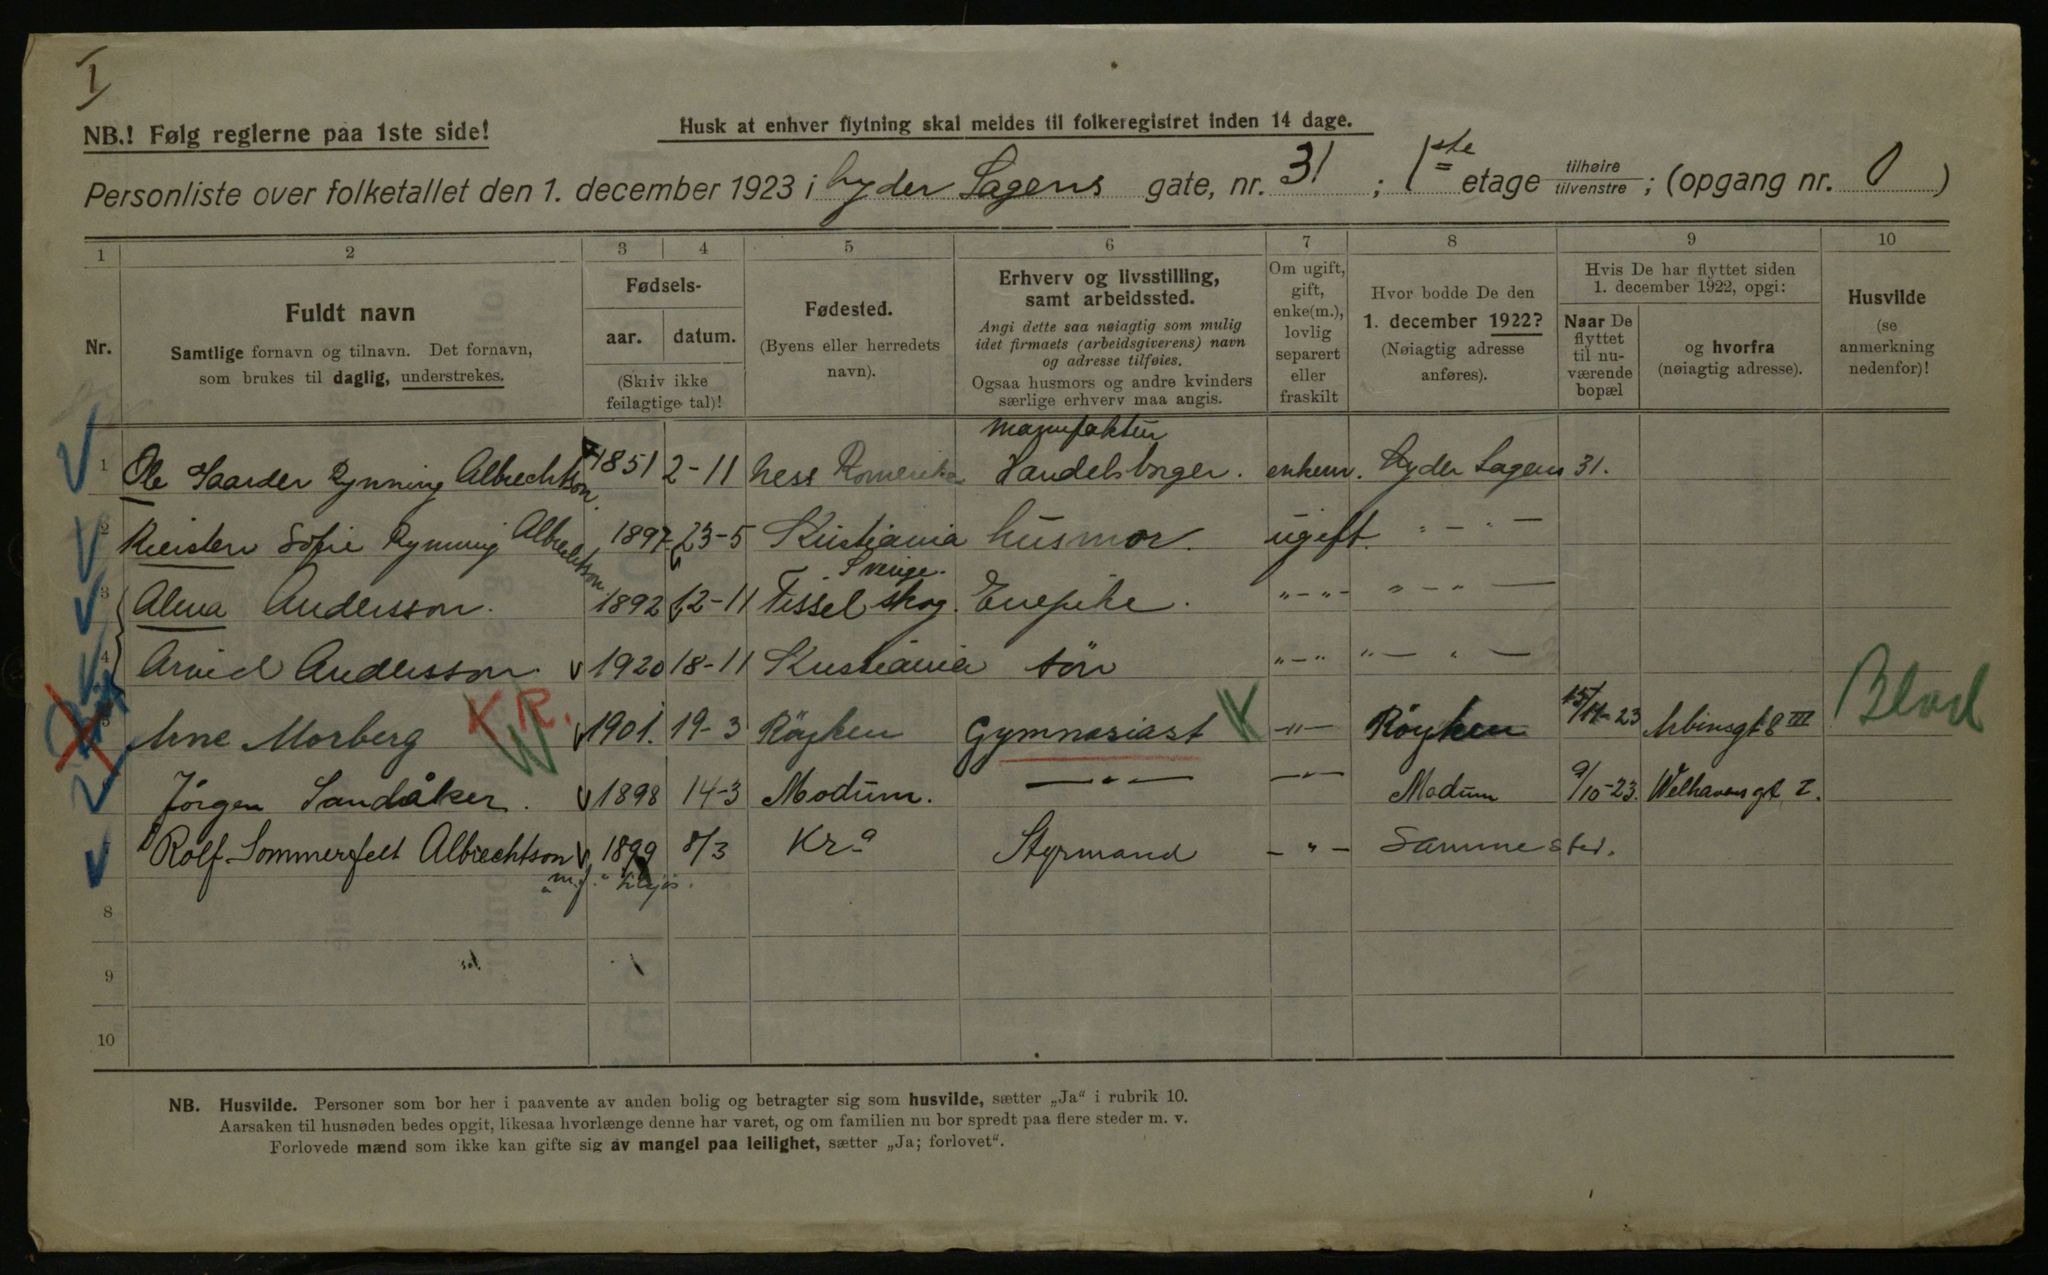 I
NB.! Følg reglerne paa 1ste side!
Husk at enhver flytning skal meldes til folkeregistret inden 14 dage.
Personliste over folketallet den 1. december 1923 i Lyder Sagens gate, nr. 31 ; 1ste etage tilhøire tilvenstre ; (opgang nr. 0 )
1 2 3 4 5 6 7 8 9 10
Nr.
Fuldt navn
Samtlige fornavn og tilnavn. Det fornavn,
som brukes til daglig, understrekes.
Fødsels-
aar. datum.
(Skriv ikke
feilagtige tal)!
Fødested.
(Byens eller herredets
navn).
Erhverv og livsstilling,
samt arbeidssted.
Angi dette saa nøiagtig som mulig
idet firmaets (arbeidsgiverens) navn
og adresse tilføies.
Ogsaa husmors og andre kvinders
særlige erhverv maa angis.
Om ugift,
gift,
enke(m.),
lovlig
separert
eller
fraskilt
Hvor bodde De den
1. december 1922?
(Nøiagtig adresse
anføres).
Hvis De har flyttet siden
1. december 1922, opgi:
Naar De
flyttet
til nu-
værende
bopæl
og hvorfra
(nøiagtig adresse).
Husvilde
(se
anmerkning
nedenfor)!
manufaktur
1 Ole Gaarder Rynning Albrechtson 1851 2-11 Ness Romerike Handelsborger. enkem. Lyder Sagens 31.
2 Sofie Rynning Albrechtson 1897 23-5 Kristiania husmor. ugift. " - " -
Sverige.
3 Andersson. 1892 12-11 Tisselskog. Enepike. " - " - " - " -
4 Arvid Andersson v 1920 18-11 Kristiania sön " - " " - " -
5 Arne Morberg K.R. v 1901. 19-3 Röyken Gymnasiast - " - Röyken 15/11-23 Arbinsgt 8 III
Jörgen Sandåker. v 1898 14-3 Modum. - " - - " - Modum 9/10-23. Welhavensgt. 7.
Rolf Sommerfelt Albrechtson v 1899 8/3 Kra Styrmand - " - Samme sted.
"m.f." tilføis.
8
9
10
NB. Husvilde. Personer som bor her i paavente av anden bolig og betragter sig som husvilde, sætter „Ja“ i rubrik 10.
Aarsaken til husnøden bedes opgit, likesaa hvorlænge denne har varet, og om familien nu bor spredt paa flere steder m. v.
Forlovede mænd som ikke kan gifte sig av mangel paa leilighet, sætter „Ja; forlovet“.